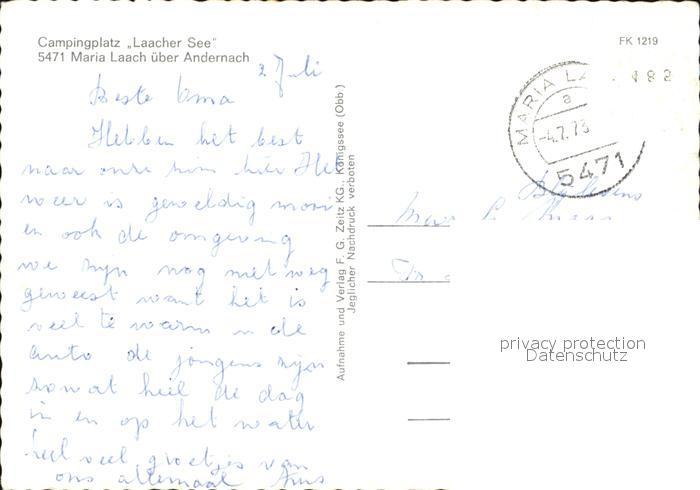 Campingplatz „Laacher See"
5471 Maria Laach über Andernach
FK 1219
2 Juli
Beste Oma
Hebben het best
naar onze zin hier Het
weer is geweldig mooi
en ook de omgeving
we zijn nog niet weg
geweest want het is
veel te warm in de
auto de jongens zijn
zowat heel de dag
in en op het water
heel veel groetjes van
ons allemaal
Aufnahme und Verlag F. G. Zeitz KG., Königssee (Obb.)
Jeglicher Nachdruck verboten
MARIA LA
a
-4.7.73
5471
privacy protection
Datenschutz